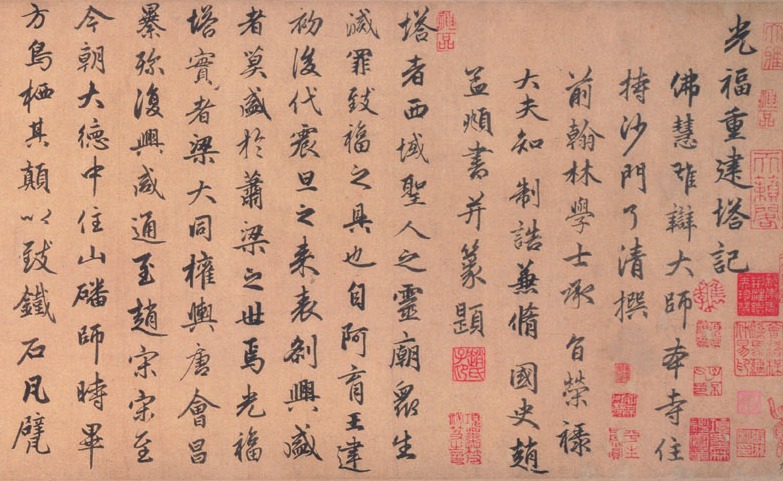 光福重建塔記
佛慧雄辯大師本寺住
持沙門了清撰
前翰林學士承旨榮祿
大夫知制誥兼脩國史趙
孟頫書并篆題
塔者西域聖人之靈廟眾生
滅罪致福之具也自阿育王建
初後代震旦之來表剏興盛
者莫盛於蕭梁之世焉光福
塔實者梁大同權輿唐會昌
暴殄復興咸通至趙宋宋至
今朝大德中住山磻師時畢
方鳥栖其顛以致鐵石凡甓